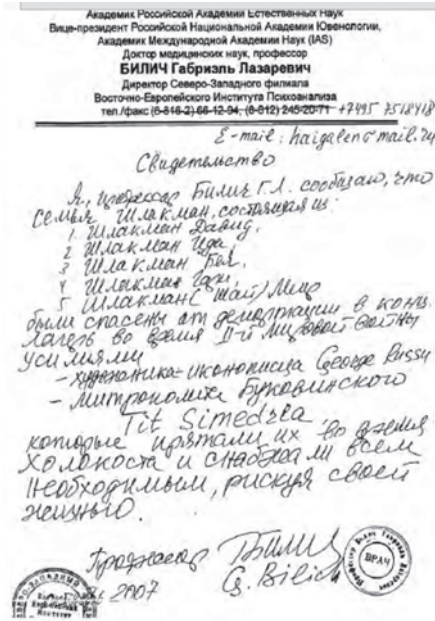 Академик Российской Академии Естественных Наук
Вице-президент Российской Национальной Академии Ювенологии,
Академик Международной Академии Наук (IAS)
Доктор медицинских наук, профессор
БИЛИЧ Габриэль Лазаревич
Директор Северо-Западного филиала
Восточно-Европейского Института Психоанализа
тел./факс (8-816-2) 66-12-94, (8-812) 245-20-71 +7495 7518418
E-mail: haigalen@mail.ru
Свидетельство
Я, профессор Билич Г.Л. сообщаю, что
семья Шлакман, состоящая из:
1 Шлакман Давид,
2 Шлакман Ида,
3 Шлакман Бея,
4 Шлакман
5 Шлакман (Май) Мицо
были спасены от депортации в конц.
лагерь во время II-й мировой войны
усилиями
- художника-иконописца George Russu
- митрополита Буковинского
Tit Simedrea,
которые прятали их во время
Холокоста и снабжали всем
необходимым, рискуя своей
жизнью.
Профессор ГБилич
G. Bilich
ВРАЧ
2007